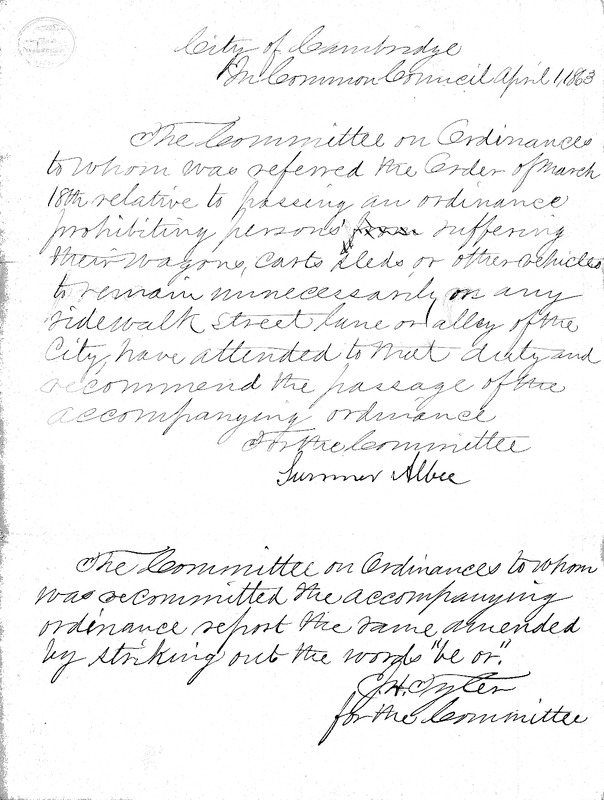 City of Cambridge
In Common Council April 1, 1863
The Committee on Ordinances
to whom was referred the Order of March
18th relative to passing an ordinance
prohibiting persons suffering
their wagons, carts sleds or other vehicles
to remain unnecessarily on any
sidewalk street lane or alley of the
City, have attended to that duty and
recommend the passage of the
accompanying ordinance
For the Committee
Sumner Albee
The Committee on Ordinances to whom
was recommitted the accompanying
ordinance report the same amended
by striking out the words "be or".
J. H. Tyler
for the Committee